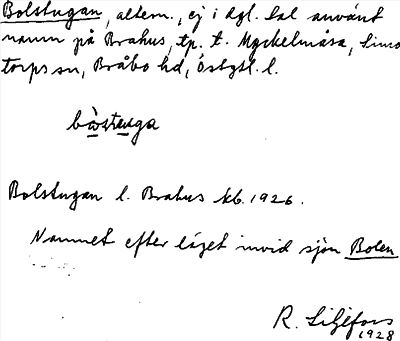 Bolstugan, altern., ej i dgl. tal använt
namn på Brahus, tp. t. Myckelmåsa, Simo
torps sn, Bråbo hd, Östgtl. l.
bɷstuga
Bolstugan l. Brahus kb. 1926.
Namnet efter läget invid sjön Bolen
R. Liljefors
1928